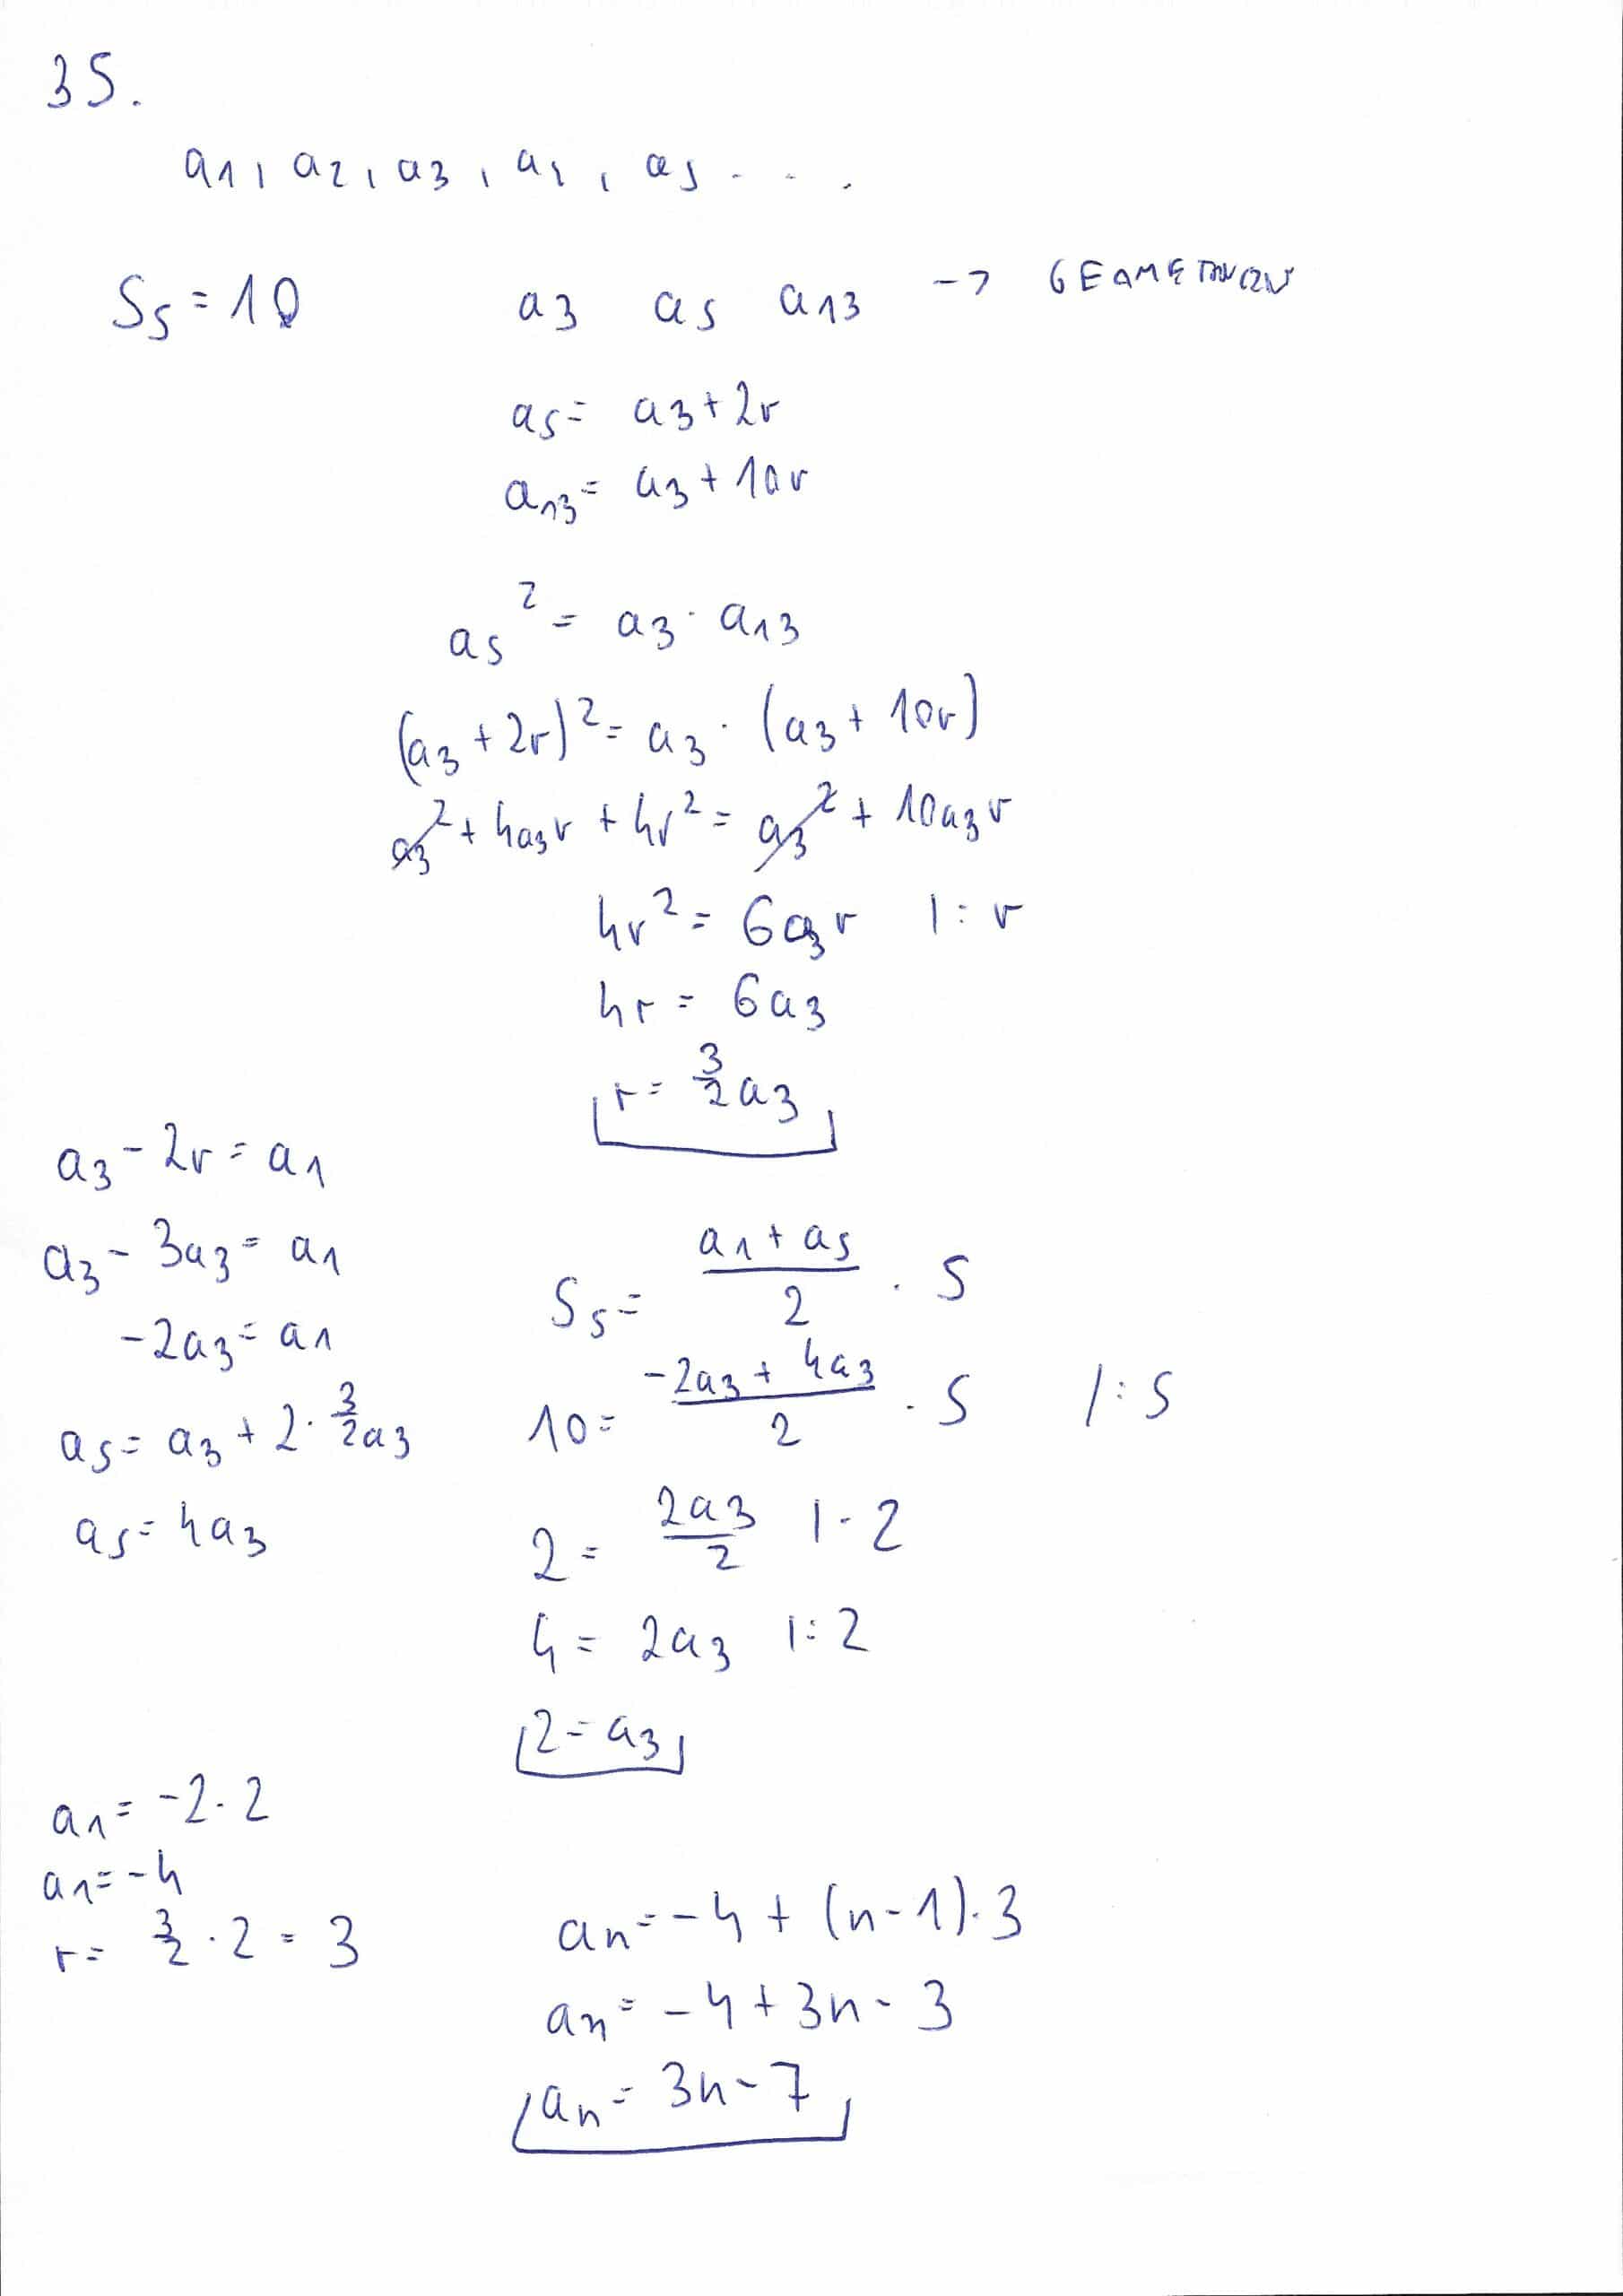 35.
a1, a2, a3, a4, a5 . . .
S5 = 10 a3 a5 a13 ->
a5 = a3 + 2r
a13 = a3 + 10r
a5² = a3 · a13
(a3 + 2r)² = a3 · (a3 + 10r)
a3² + 4a3r + 4r² = a3² + 10a3r
4r² = 6a3r |: r
4r = 6a3
r = 3/2 a3
a3 - 2r = a1
a3 - 3a3 = a1
-2a3 = a1
a5 = a3 + 2 · 3/2 a3
a5 = 4a3
S5 = (a1 + a5)/2 · 5
10 = (-2a3 + 4a3)/2 · 5 /: 5
2 = 2a3/2 | · 2
4 = 2a3 |: 2
2 = a3
a1 = -2 · 2
a1 = -4
r = 3/2 · 2 = 3
an = -4 + (n-1) · 3
an = -4 + 3n - 3
an = 3n - 7